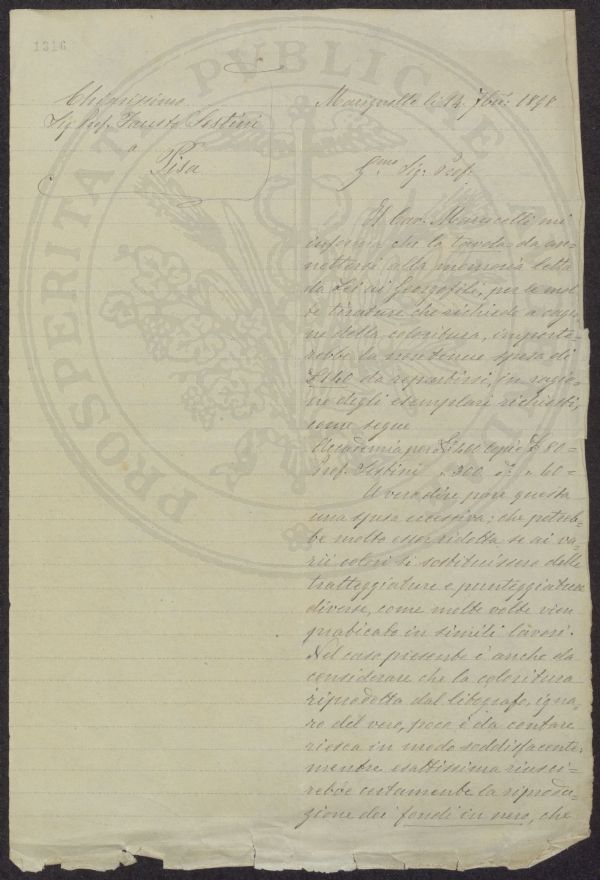 1316
PROSPERITATI PVBLICAE
Chiarissimo
Sig Prof. Fausto Sestini
a
Pisa
Marignolle li 14 7bre 1898
Sig. Prof.
Il Cav. Marucelli mi
informa che la tavola da an-
nettersi alla memoria letta
da Lei ai Georgofili, per le mol
te tirature che richiede a cagio
ne della coloritura, importe-
rebbe la non tenue spesa di
£ 140 da repartirsi, in ragio
ne degli esemplari richiesti,
come segue
Accademia per 400 copie £ 80=
Prof. Sestini " 200 " 60=
A vero dire pare questa
una spesa eccessiva; che potreb-
be molto esser ridotta se ai va-
rii colori si sostituissero delle
tratteggiature e punteggiature
diverse, come molte volte vien
praticato in simili lavori.
Nel caso presente è anche da
considerare che la coloritura
riprodotta dal litografo, igna-
ro del vero, poco è da contare
riesca in modo soddisfacente;
mentre esattissima riusci-
rebbe certamente la riprodu-
zione dei fondi in nero, che